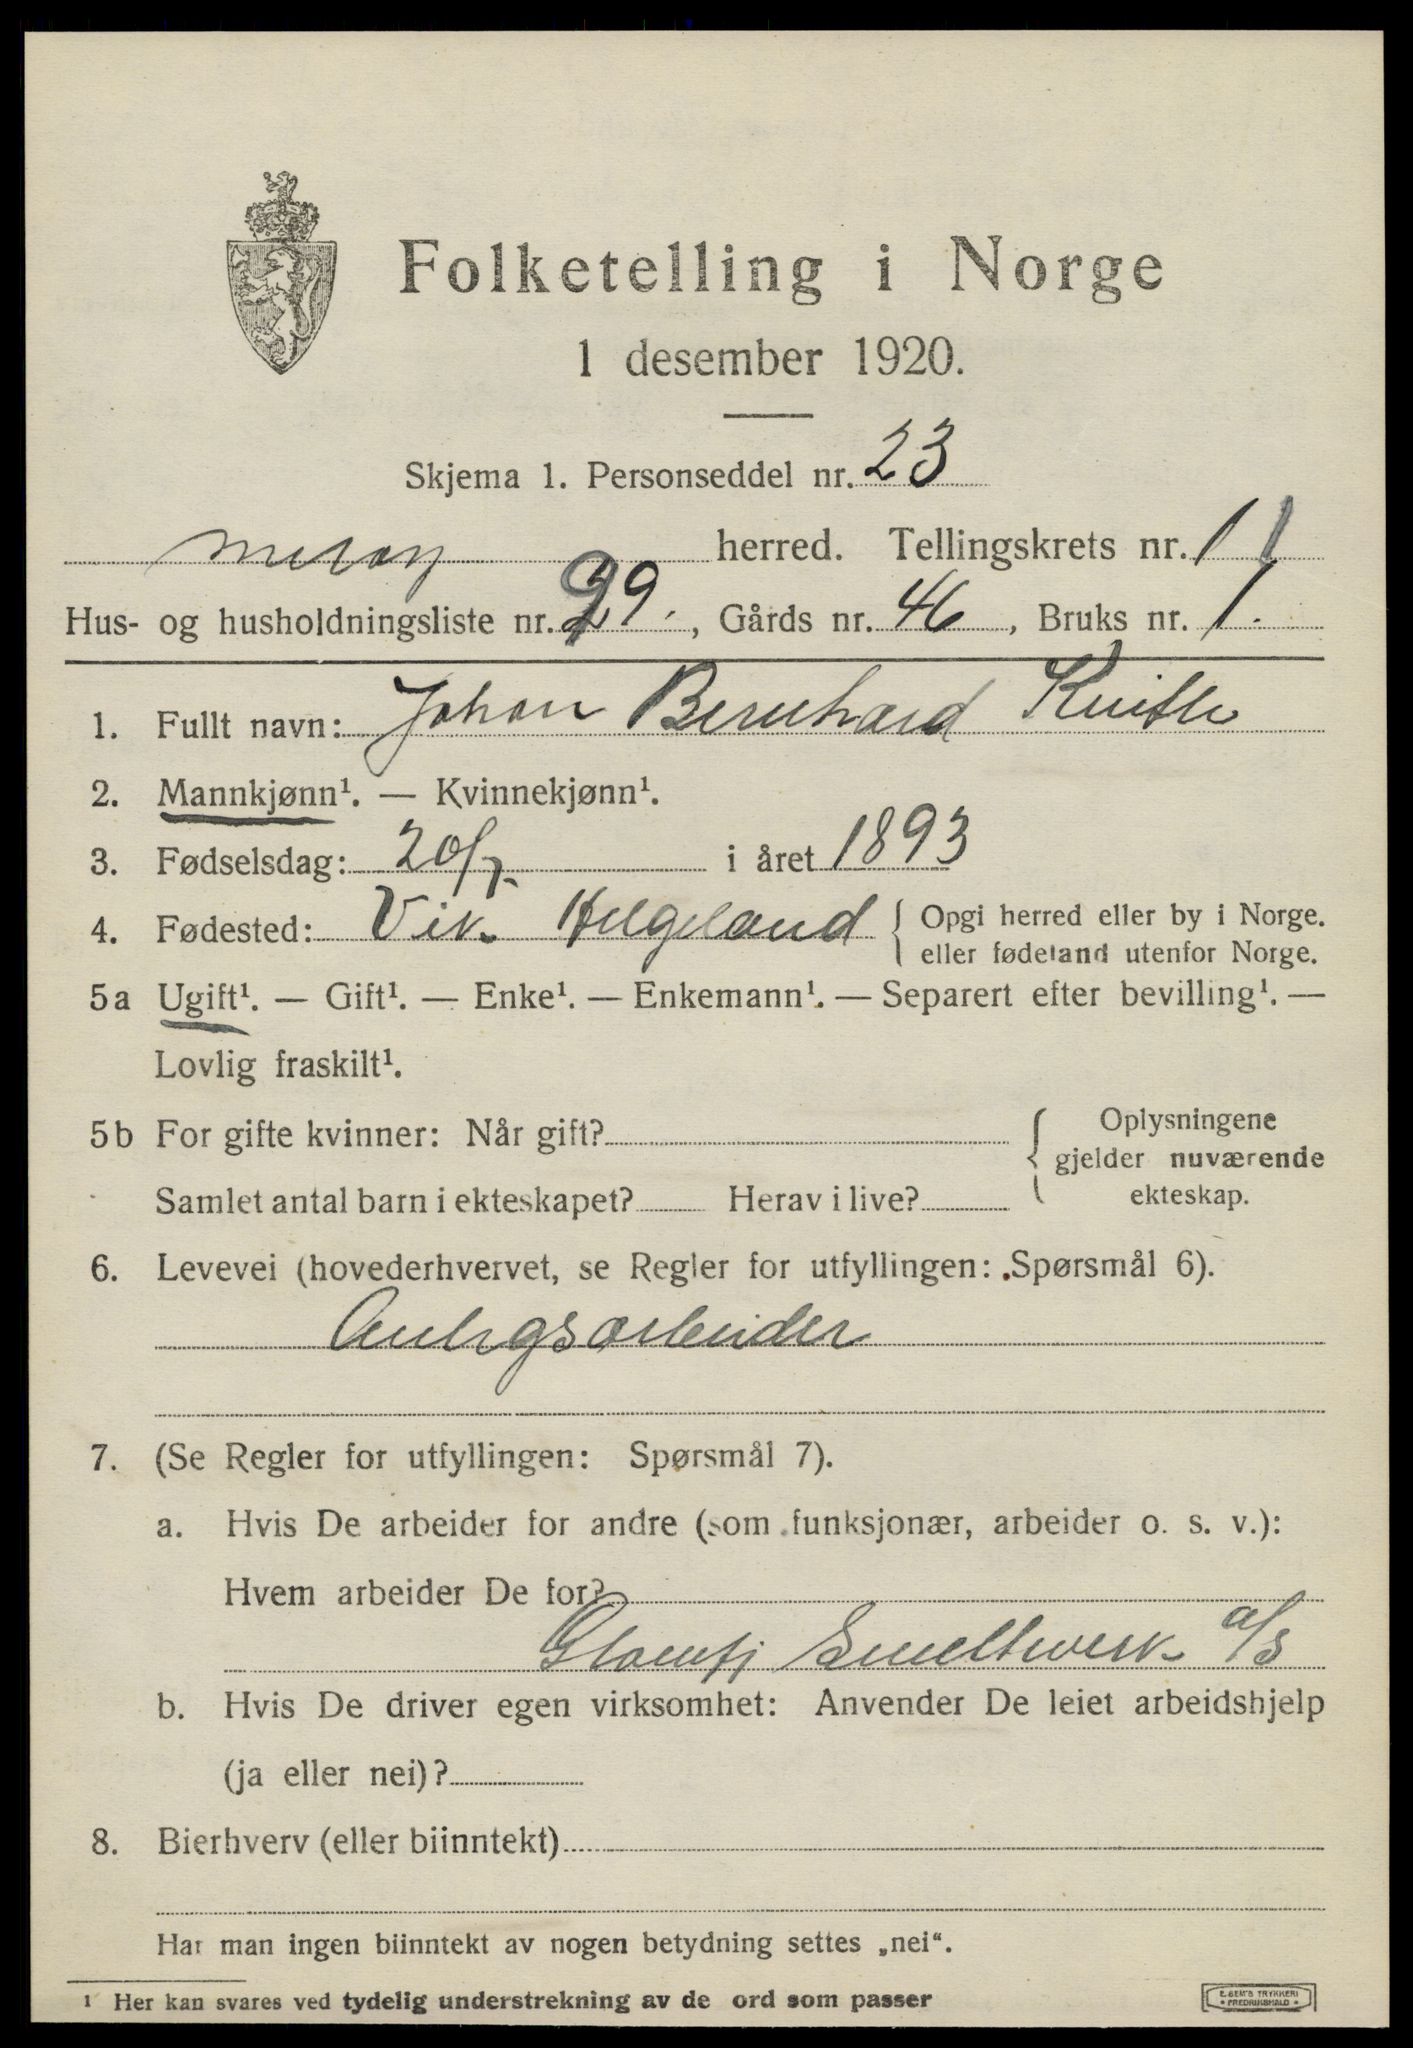 Folketelling i Norge
1 desember 1920.
Skjema 1. Personseddel nr. 23
Meløy herred. Tellingskrets nr. 11
Hus- og husholdningsliste nr. 29. , Gårds nr. 46 , Bruks nr. 1.
1. Fullt navn: Johan Bernhard
2. Mannkjønn¹. — Kvinnekjønn¹.
3. Fødselsdag: 20/7. i året 1893
4. Fødested: Vik. Helgeland { Opgi herred eller by i Norge.
eller fødeland utenfor Norge.
5a Ugift¹. — Gift¹. — Enke¹. — Enkemann¹. — Separert efter bevilling¹. —
Lovlig fraskilt¹.
5b For gifte kvinner: Når gift? { Oplysningene
gjelder nuværende
Samlet antal barn i ekteskapet? Herav i live? ekteskap.
6. Levevei (hovederhvervet, se Regler for utfyllingen: Spørsmål 6).
Anlegsarbeider
7. (Se Regler for utfyllingen: Spørsmål 7).
a. Hvis De arbeider for andre (som funksjonær, arbeider o. s. v.):
Hvem arbeider De for?
Glomfj Smeltwerk a/s
b. Hvis De driver egen virksomhet: Anvender De leiet arbeidshjelp
(ja eller nei)?
8. Bierhverv (eller biinntekt)
Har man ingen biinntekt av nogen betydning settes „nei“.
¹ Her kan svares ved tydelig understrekning av de ord som passer
E. SEM'S TRYKKERI
* FREDRIKSHALD *